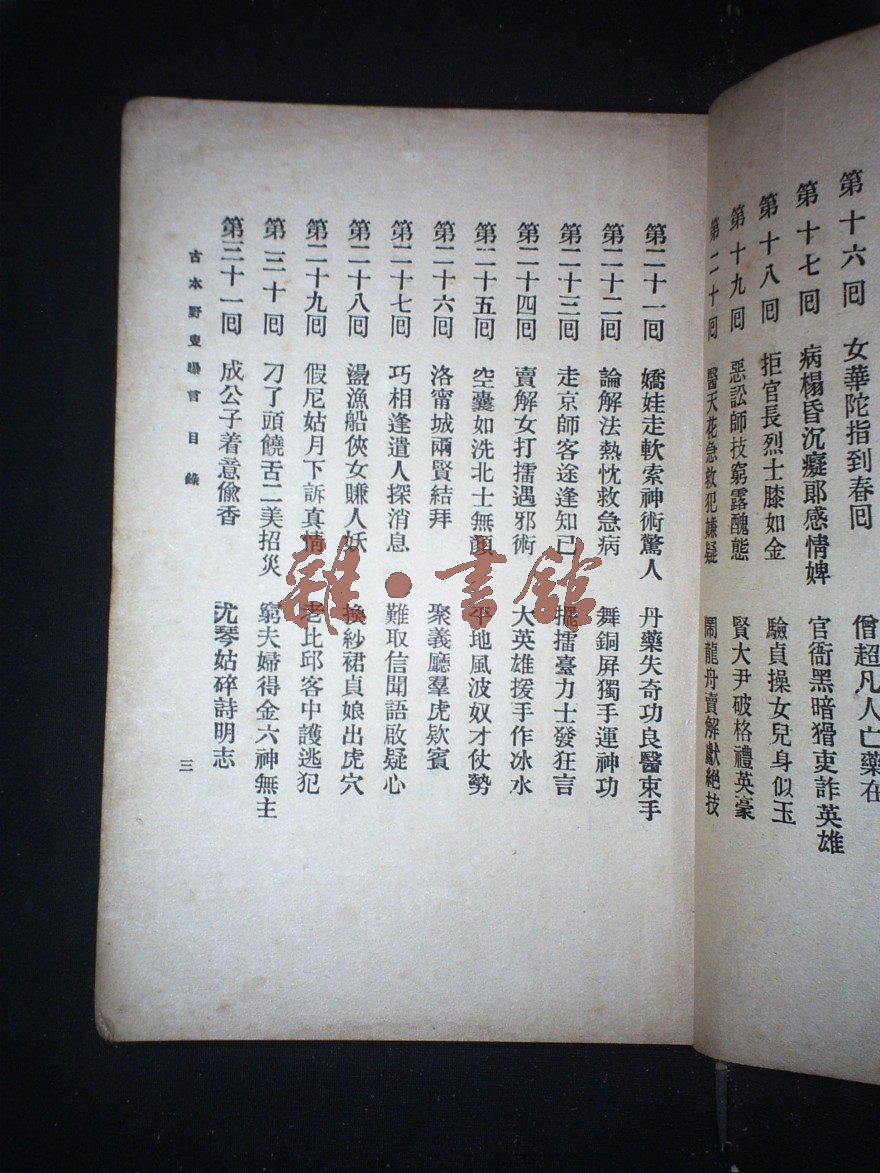 第十六囘 女華陀指到春囘 僧超凡人亡藥在
第十七囘 病榻昏沉癡郞感情婢 官衙黑暗猾吏詐英雄
第十八囘 拒官長烈士膝如金 驗貞操女兒身似玉
第十九囘 惡訟師技窮露醜態 賢大尹破格禮英豪
第二十囘 醫天花急救犯嫌疑 鬧龍舟賣解獻絕技
第二十一囘 嬌娃走軟索神術驚人 丹藥失奇功良醫束手
第二十二囘 論解法熱忱救急病 舞銅屏獨手運神功
第二十三囘 走京師客途逢知已 擺擂臺力士發狂言
第二十四囘 賣解女打擂遇邪術 大英雄援手作冰水
第二十五囘 空囊如洗北士無顏 平地風波奴才仗勢
第二十六囘 洛甯城兩賢結拜 聚義廳羣虎欵賓
第二十七囘 巧相逢遣人探消息 難取信聞語啟疑心
第二十八囘 盪漁船俠女賺人妖 換紗裙貞娘出虎穴
第二十九囘 假尼姑月下訴真情 老比邱客中護逃犯
第三十囘 刁了頭饒舌二美招災 窮夫婦得金六神無主
第三十一囘 成公子着意偸香 尤琴姑碎詩明志
古本野叟曝言 目錄
三
雜·書館